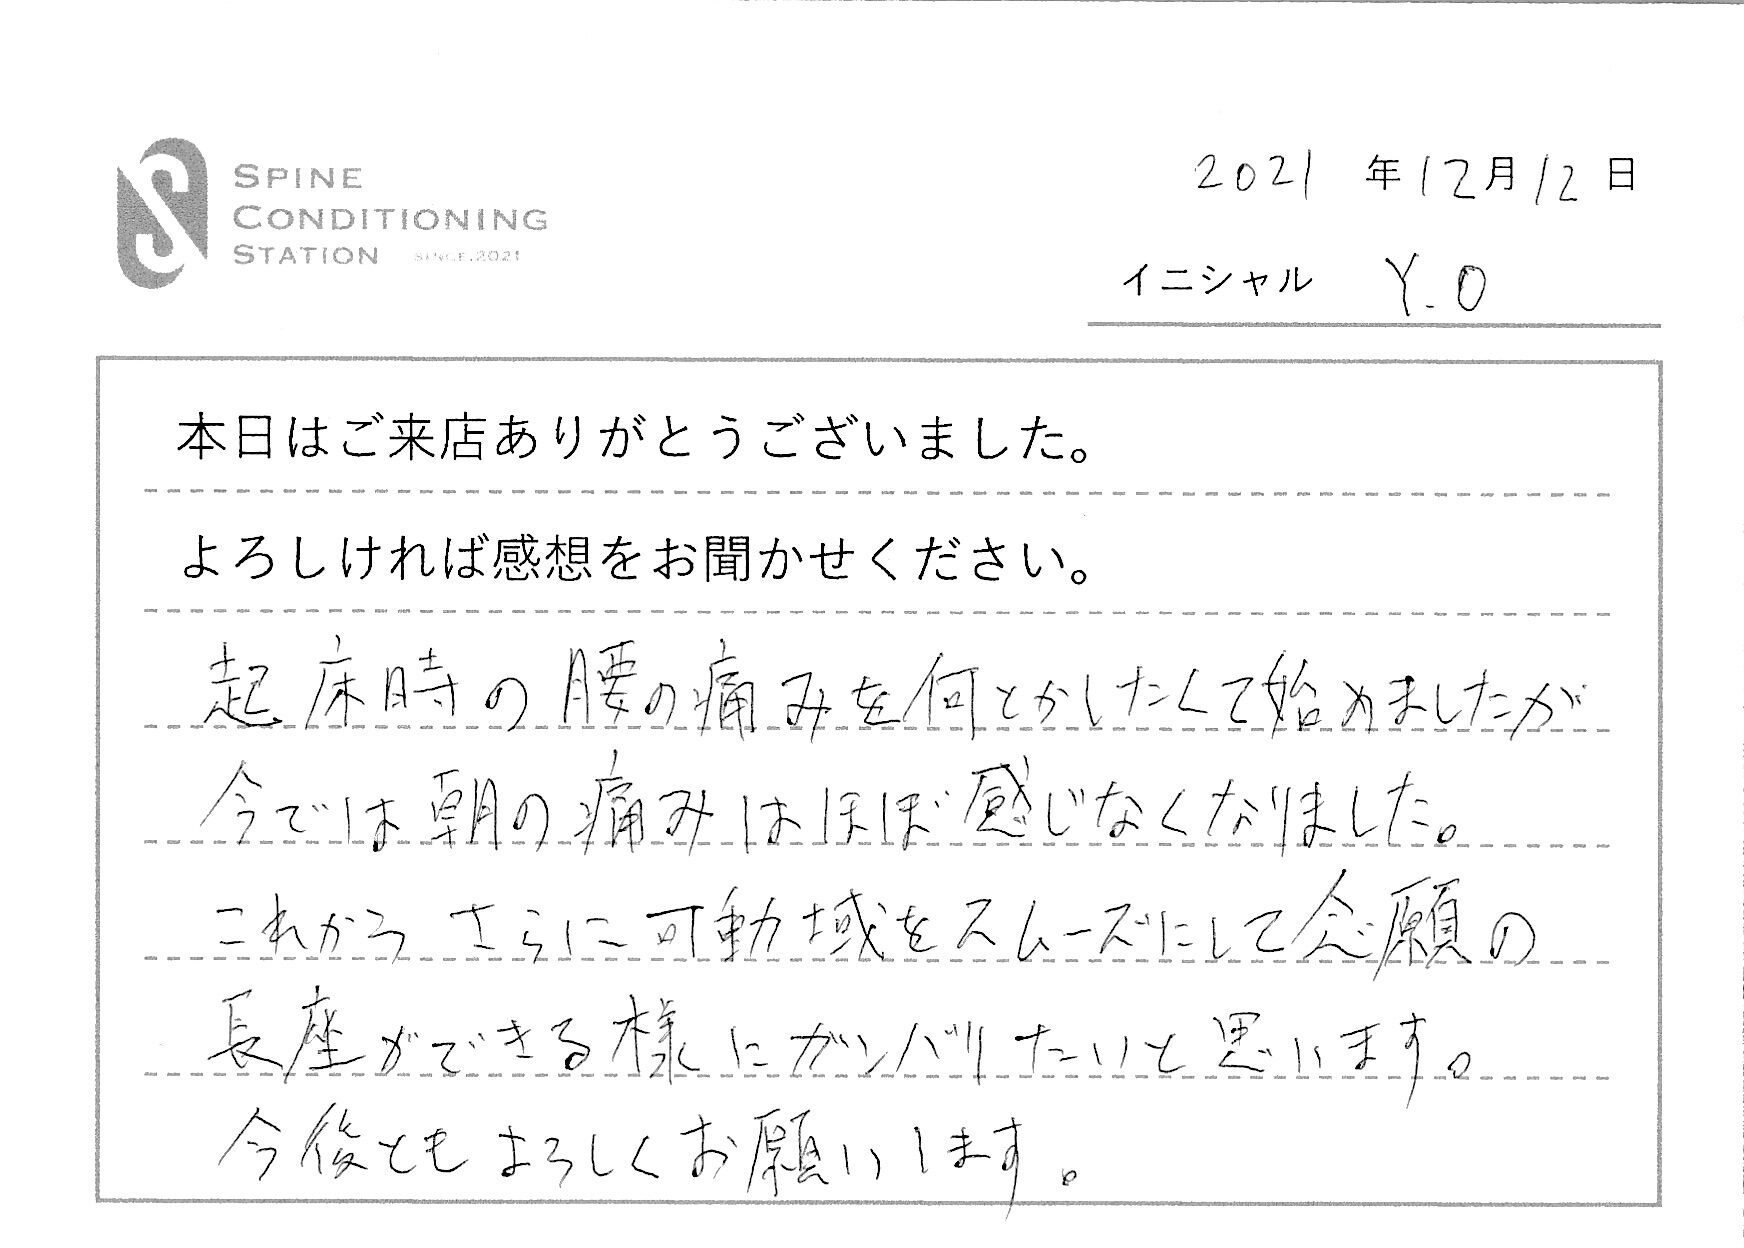 SPINE
CONDITIONING
STATION SINCE.2021
2021 年 12 月 12 日
イニシャル Y.O
本日はご来店ありがとうございました。
よろしければ感想をお聞かせください。
起床時の腰の痛みを何とかしたくて始めましたが
今では朝の痛みはほぼ感じなくなりました。
これから さらに可動域をスムーズにして念願の
長座ができる様にガンバリたいと思います。
今後ともよろしくお願いします。